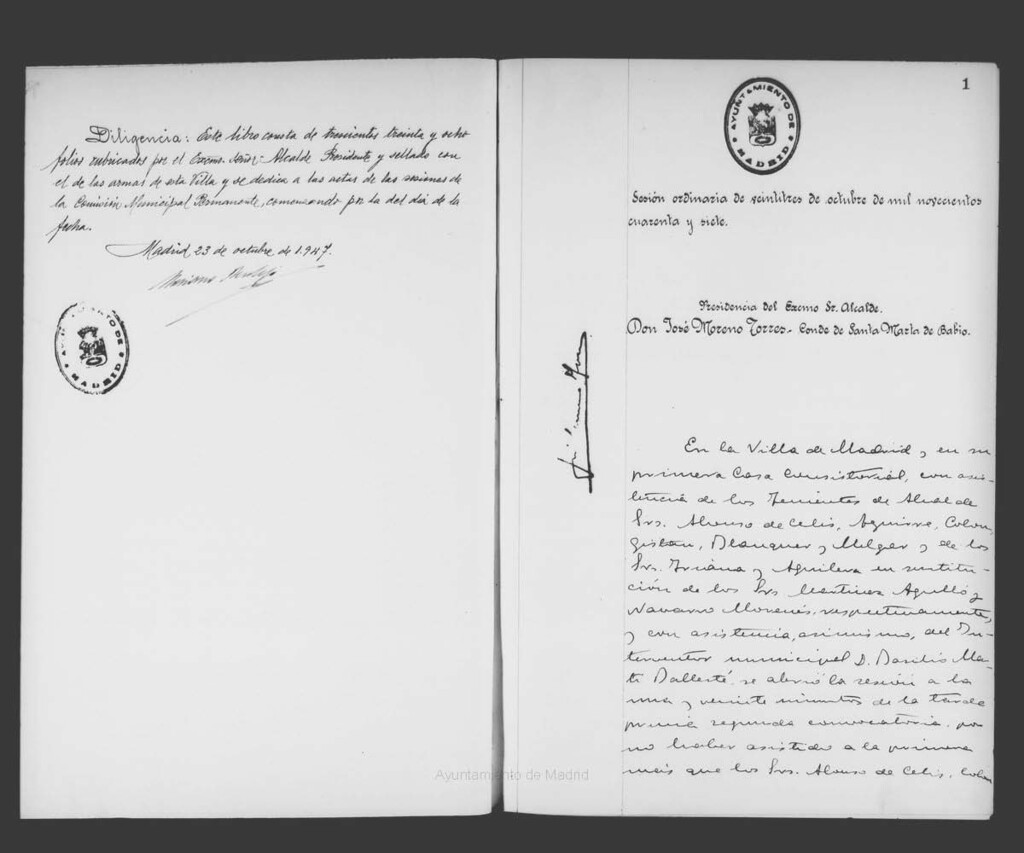 Diligencia: Este libro consta de trescientos treinta y ocho
folios rubricados por el Excmo. Señor Alcalde Presidente y sellado con
el de las armas de esta Villa y se dedica a las actas de las sesiones de
la Comisión Municipal Permanente, comenzando por la del día de la
fecha.
Madrid 23 de octubre de 1.947.
AYUNTAMIENTO DE
MADRID
1
AYUNTAMIENTO DE
MADRID
Sesión ordinaria de veintitres de octubre de mil novecientos
cuarenta y siete.
Presidencia del Excmo Sr. Alcalde.
Don José Moreno Torres.- Conde de Santa Marta de Babio.
En la Villa de Madrid y en su
primera Casa Consistorial, con asis-
tencia de los Tenientes de Alcalde
Srs. Alonso de Celis, Aguirre, Colom,
Gistau, Blanquer y Melgar y de los
Srs. Triana y Aguilera en sustitu-
ción de los Srs Martinez Agulló y
Navarro Morenés, respectivamente,
y con asistencia, asimismo, del In-
terventor municipal D. Basilio Ma-
ti Ballesté se abrió la sesión a la
una y veinte minutos de la tarde
previa segunda convocatoria, por
no haber asistido a la primera
más que los Srs. Alonso de Celis, Colom
Ayuntamiento de Madrid